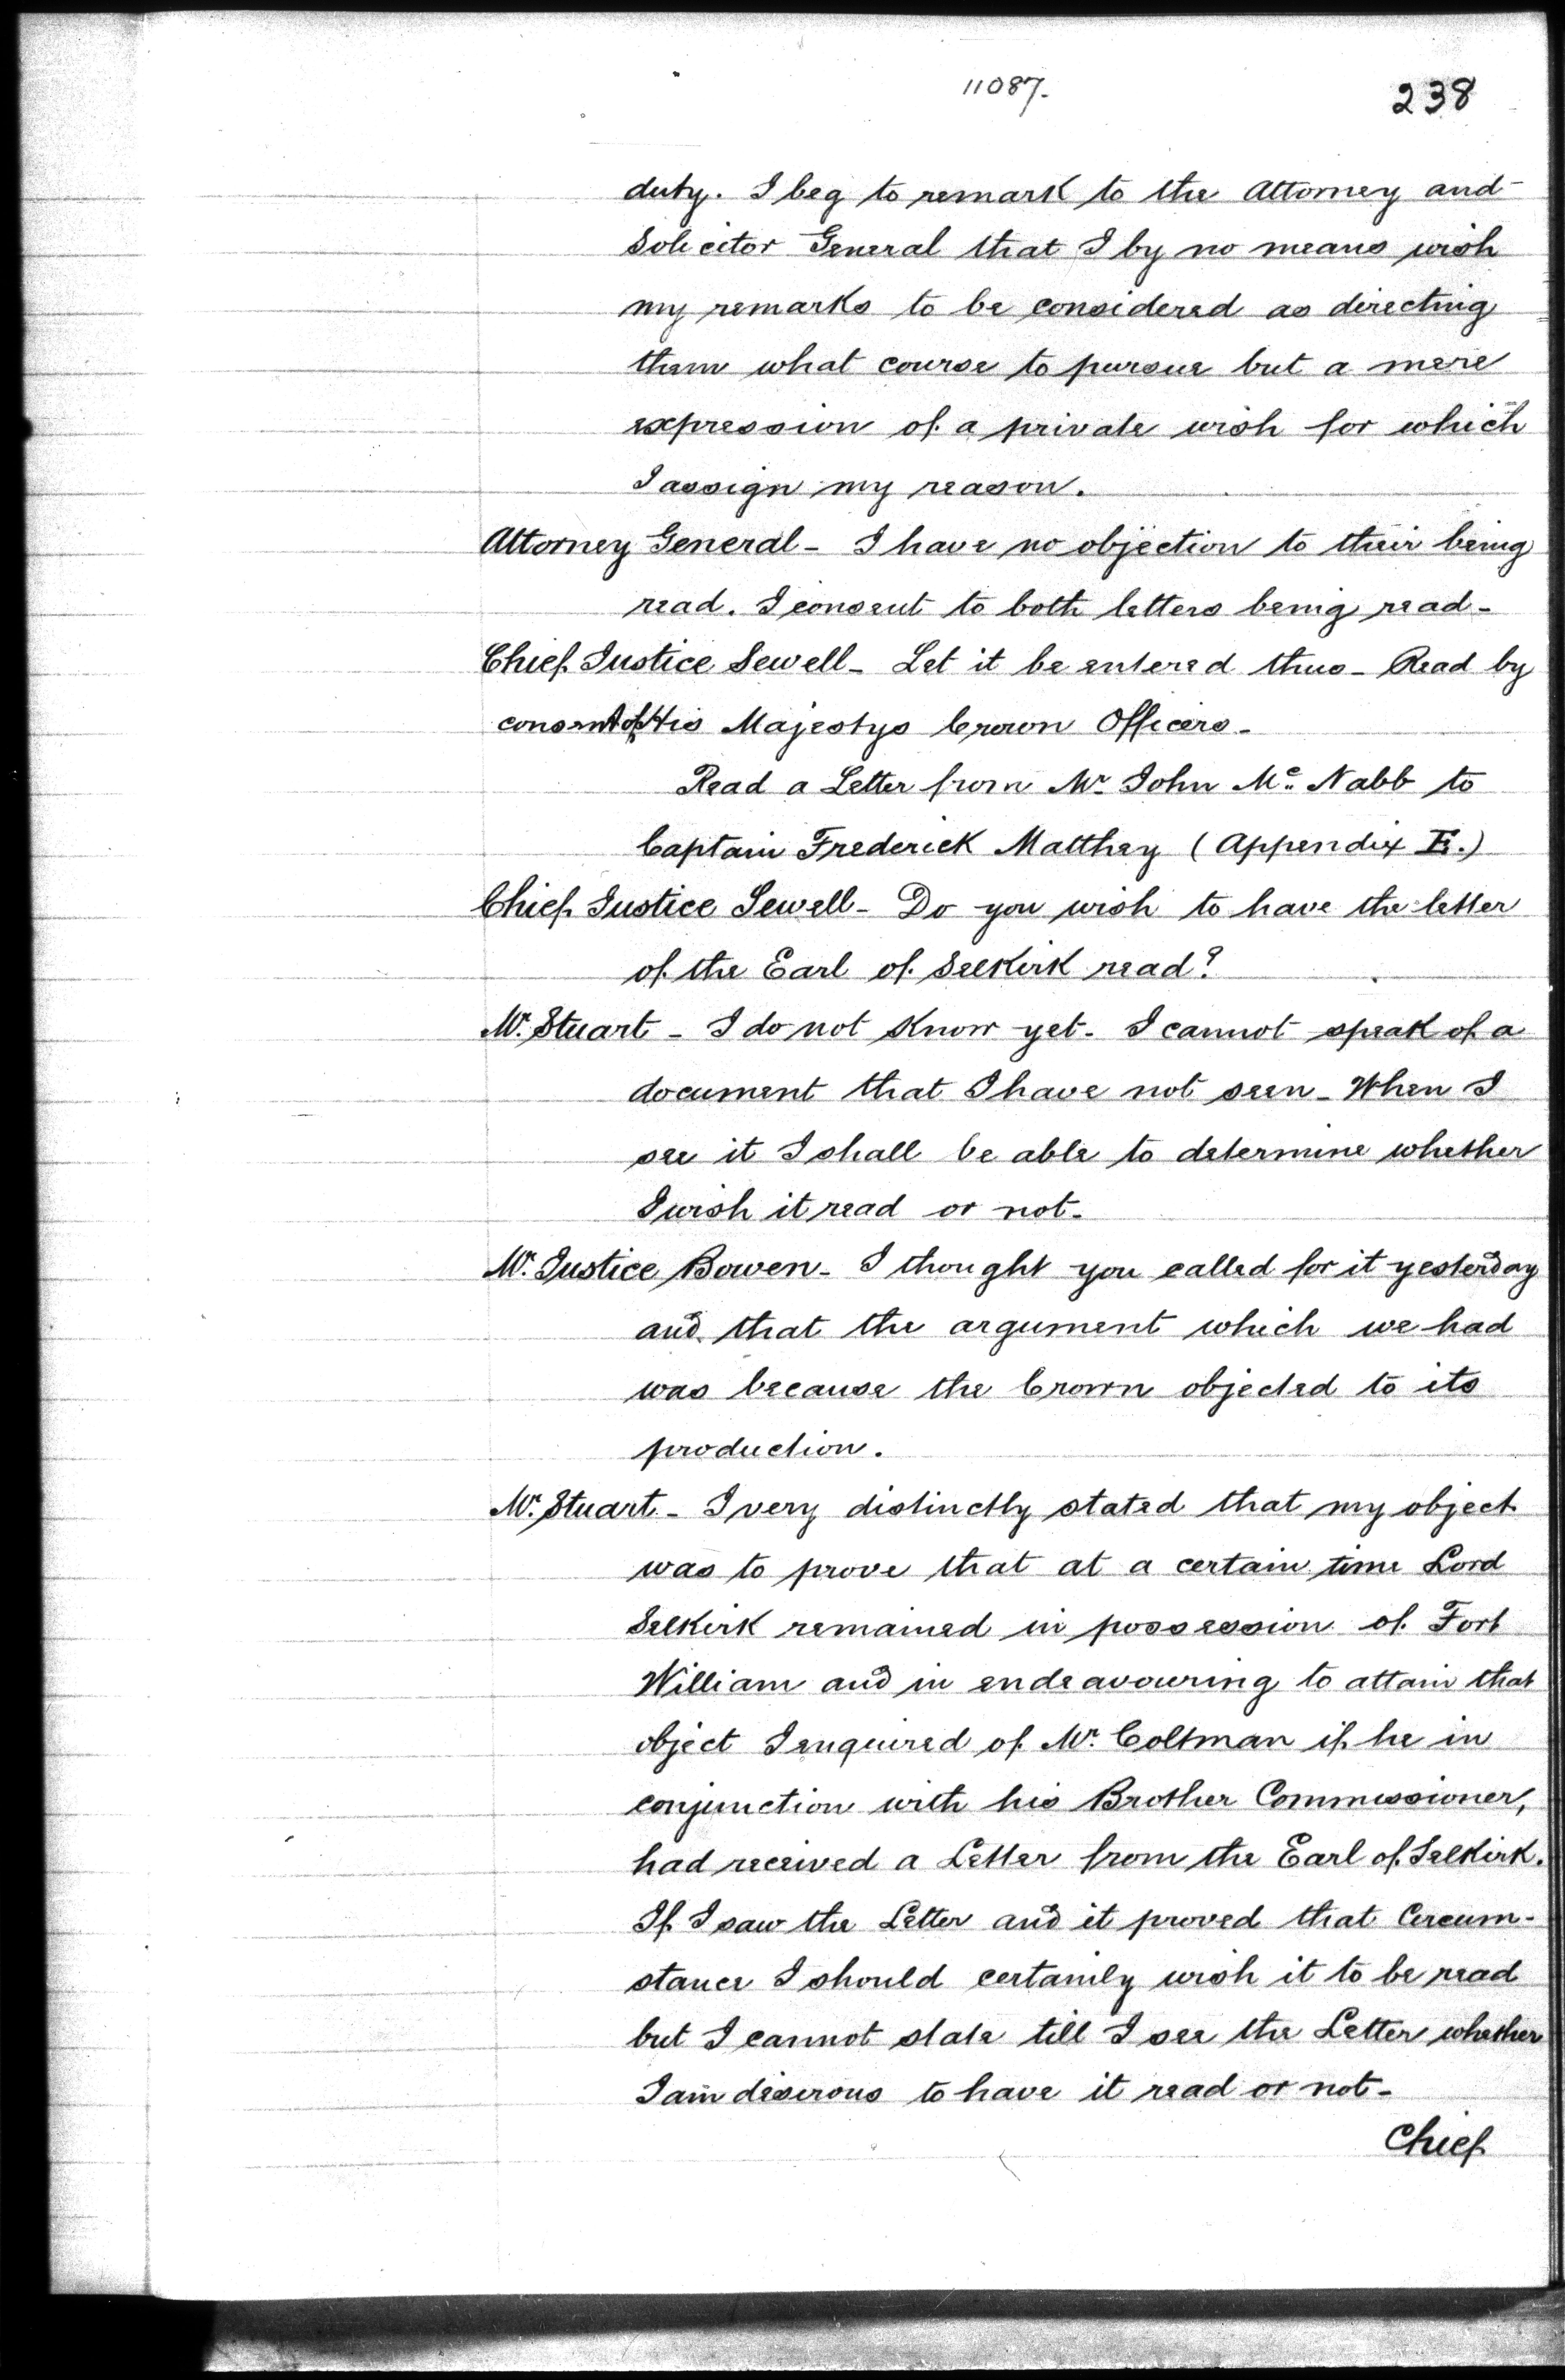 11087.
238
duty. I beg to remark to the Attorney and
Solicitor General that I by no means wish
my remarks to be considered as directing
them what course to pursue but a mere
expression of a private wish for which
I assign my reason.
Attorney General - I have no objection to their being
read. I consent to both letters being read -
Chief Justice Sewell - Let it be entered thus - Read by
consent of His Majestys Crown Officers -
Read a Letter from Mr. John Mc. Nabb to
Captain Frederick Matthey (Appendix E.)
Chief Justice Sewell - Do you wish to have the letter
of the Earl of Selkirk read?
Mr. Stuart - I do not know yet - I cannot speak of a
document that I have not seen - When I
see it I shall be able to determine whether
I wish it read or not -
Mr. Justice Bowen - I thought you called for it yesterday
and that the argument which we had
was because the Crown objected to its
production.
Mr. Stuart - I very distinctly stated that my object
was to prove that at a certain time Lord
Selkirk remained in possession of Fort
William and in endeavouring to attain that
object I enquired of Mr. Coltman if he in
conjunction with his Brother Commissioner,
had received a Letter from the Earl of Selkirk.
If I saw the Letter and it proved that Circum-
stance I should certainly wish it to be read
but I cannot state till I see the Letter whether
I am desirous to have it read or not -
Chief